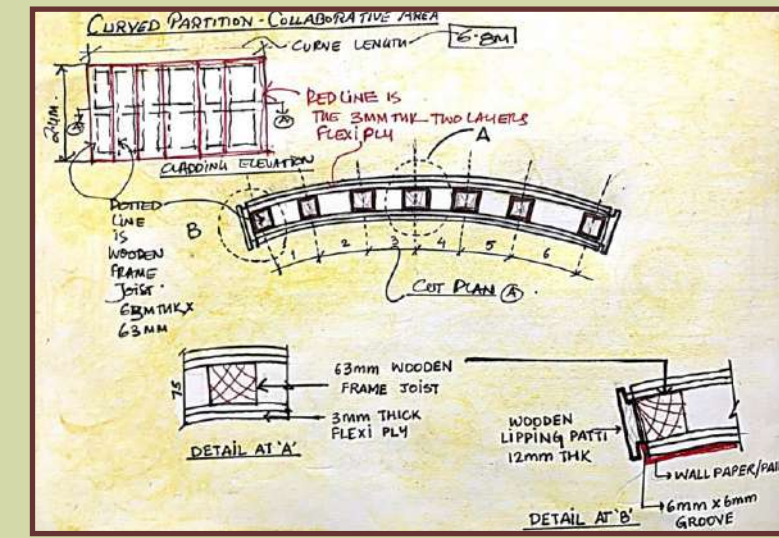 CURVED PARTITION - COLLABORATIVE AREA
CURVE LENGTH 6.8M
RED LINE IS
THE 3MM THK TWO LAYERS
FLEXI PLY
A
A
A
CLADDING ELEVATION
DOTTED
LINE
IS
WOODEN
FRAME
JOIST.
63MMTHK X
63MM
B
1 2 3 4 5 6
CUT PLAN A.
75
63mm WOODEN
FRAME JOIST
3mm THICK
FLEXI PLY
DETAIL AT 'A'
WOODEN
LIPPING PATTI
12mm THK
WALL PAPER/PAI
6mm x 6mm
GROOVE
DETAIL AT 'B'